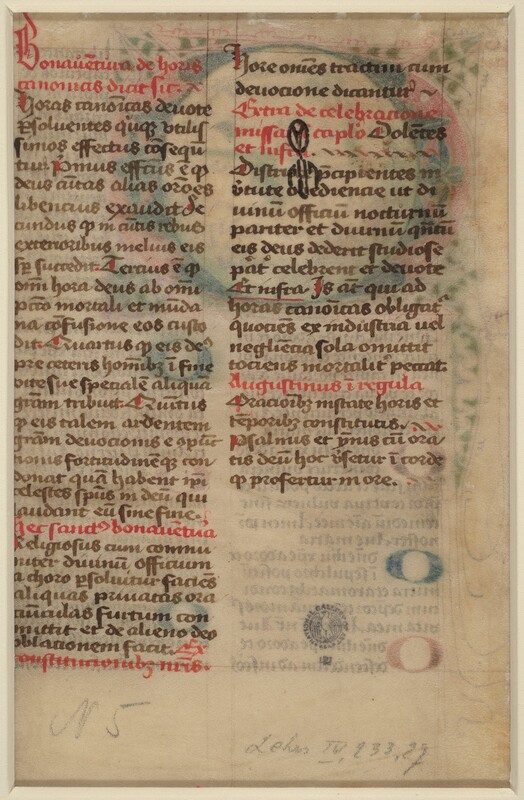 Bonauētura de horis
canonicis dicit sic.
horas canonicas deuote
psoluentes quīqȝ vtilis
simos effectus cōsequū
tur Primus effcūs ē ꝙ
deus cūctas alias orōēs
libencius exaudit Se
cundus ꝙ in cūctis rebus
exterioribus melius eis
sp succedit. Tercius ē ꝙ
omī hora deus ab omī
pctō mortali et mūda
na cōfusione eos custo
dit. Quartus ꝙ eis deꝰ
pre ceteris hominibȝ ī fine
vite sue specialē aliquā
grām tribuit. Quītus
ꝙ eis talem ardentem
grām deuocionis
fortitudinēqȝ con
donat quā habent ipī
celestes spūs in deū qui
laudant eū sine fine.
hec sanctꝰ bonauētura
Religiosus cum commu
niter diuinū officium
a choro psoluitur facies
aliquas priuatas ora
ciūculas furtum con
mittit et de alieno deo
oblacionem facit. Ex
constitucionibȝ nrīs.
hore omēs tractim cum
deuocione dicantur
Extra de celebracione
missaꝝ caplo Dolētes
et infra.
Districte pcipientes in
vtute obediencie ut di
uinū officiū nocturnū
pariter et diurnū qntū
eis deus dederit studiose
pāt celebrent et deuote
Et infra Is āt qui ad
horas canonicas obligatꝰ
quociēs ex industria uel
negliēcia sola omittit
tociens mortalitꝰ peccat.
Augustinus ī regula
Oracionibȝ instate horis et
tēporibȝ constitutis.
Psalmis et ymnis cū ora
tis deū hoc vsetur ī corde
ꝙ profertur in ore.
N 5
Lehrs IV, 233, 29